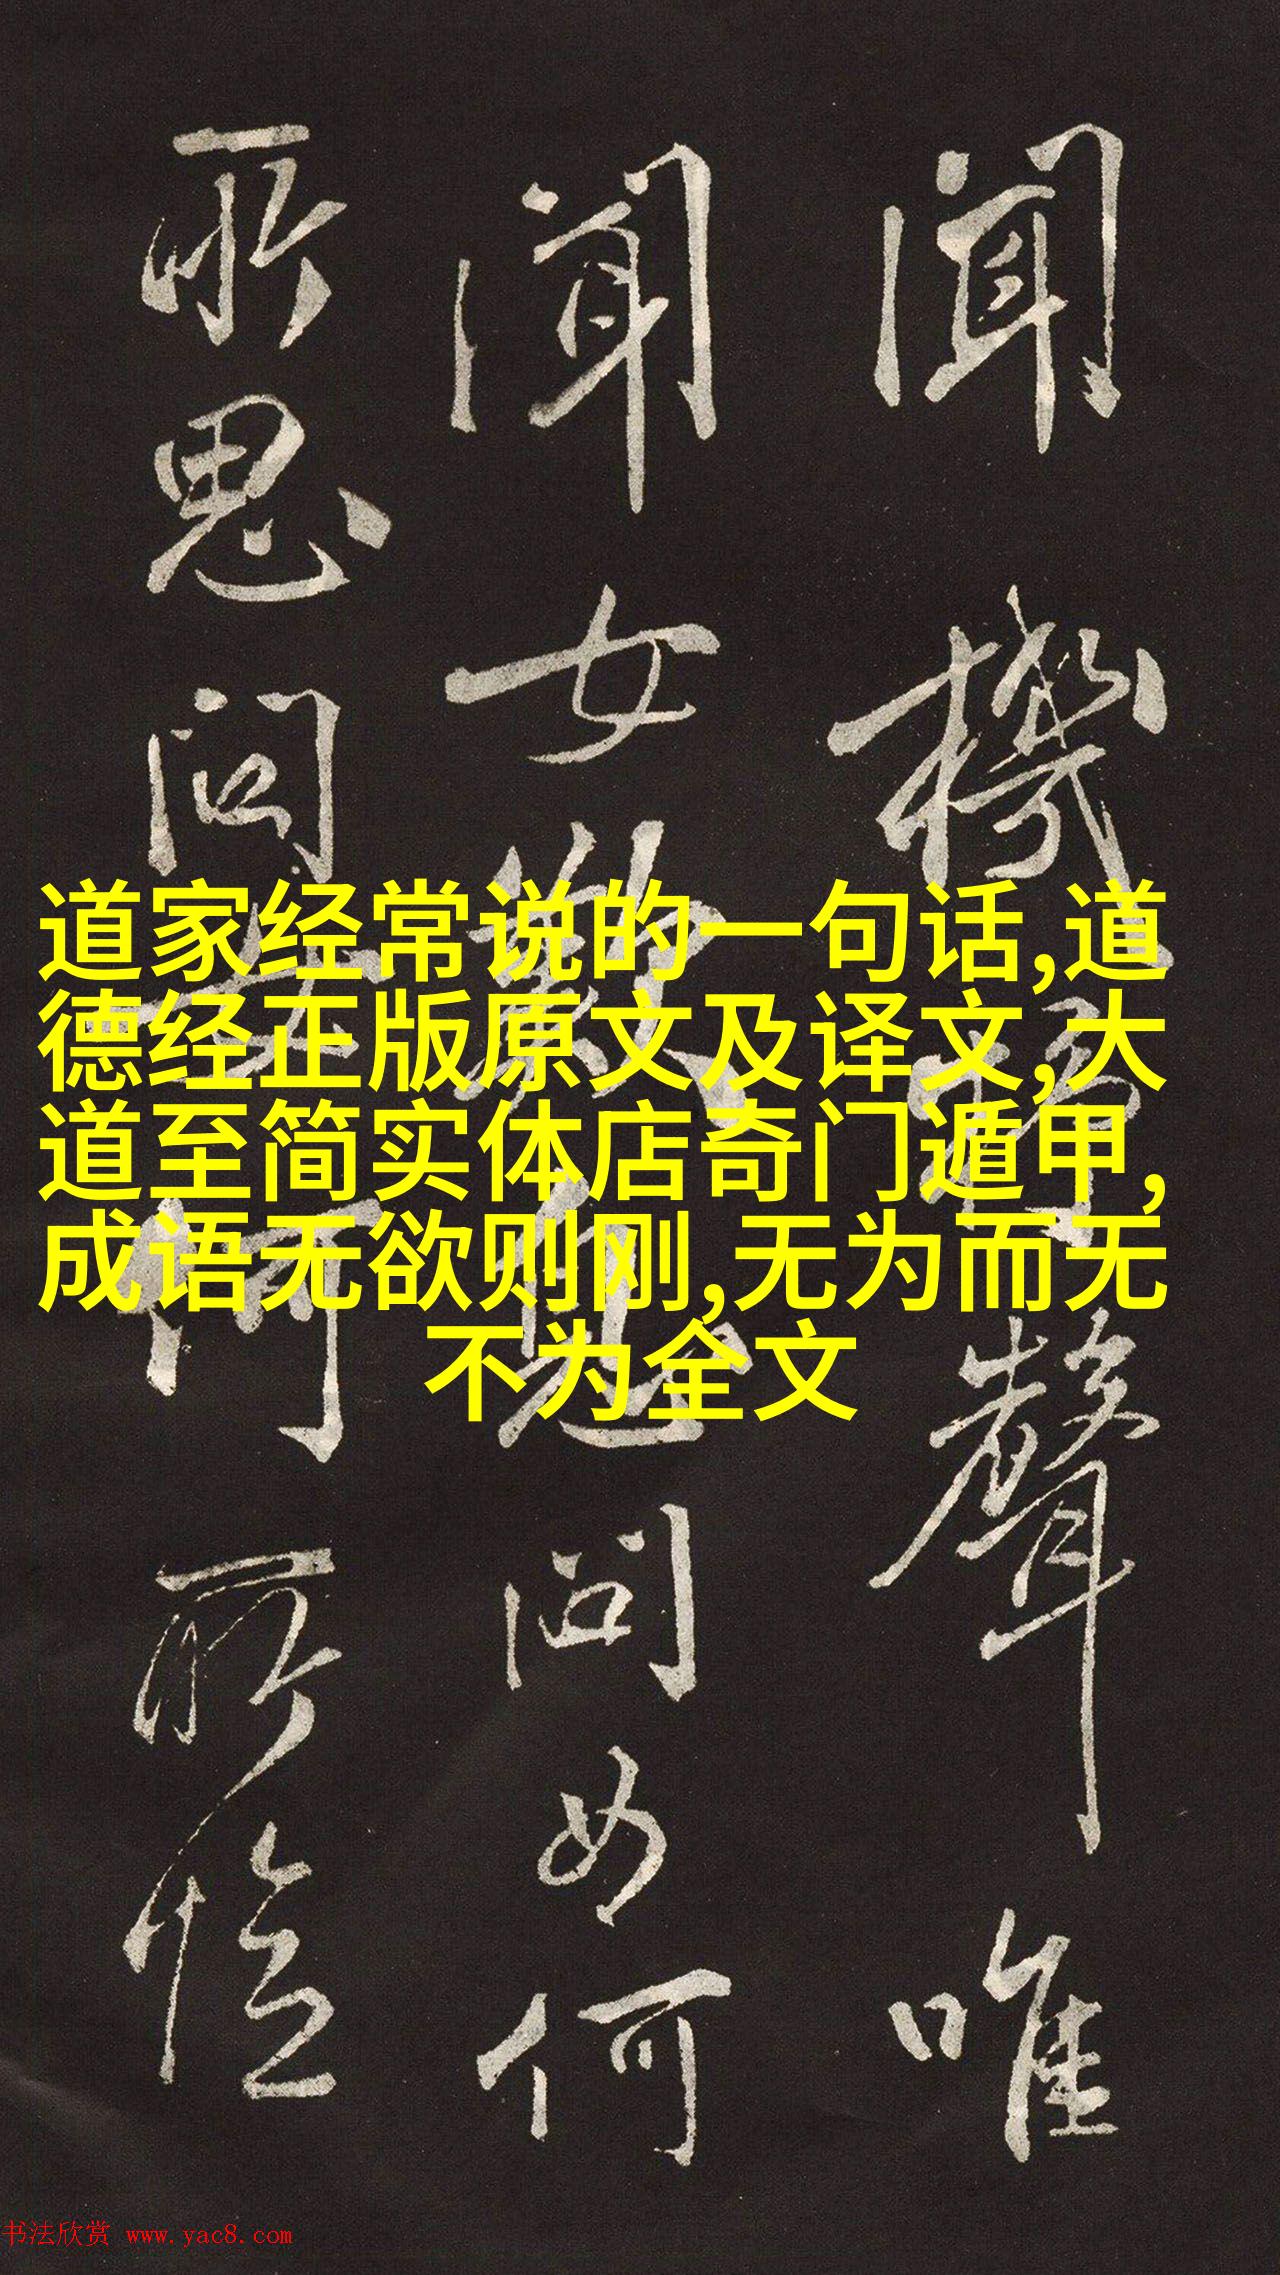 聞機杼聲唯
聞女歎息問女何
所思問女何所憶
道家经常说的一句话,道
德经正版原文及译文,大
道至简实体店奇门遁甲,
成语无欲则刚,无为而无
不为全文
书法欣赏 www.yac8.com